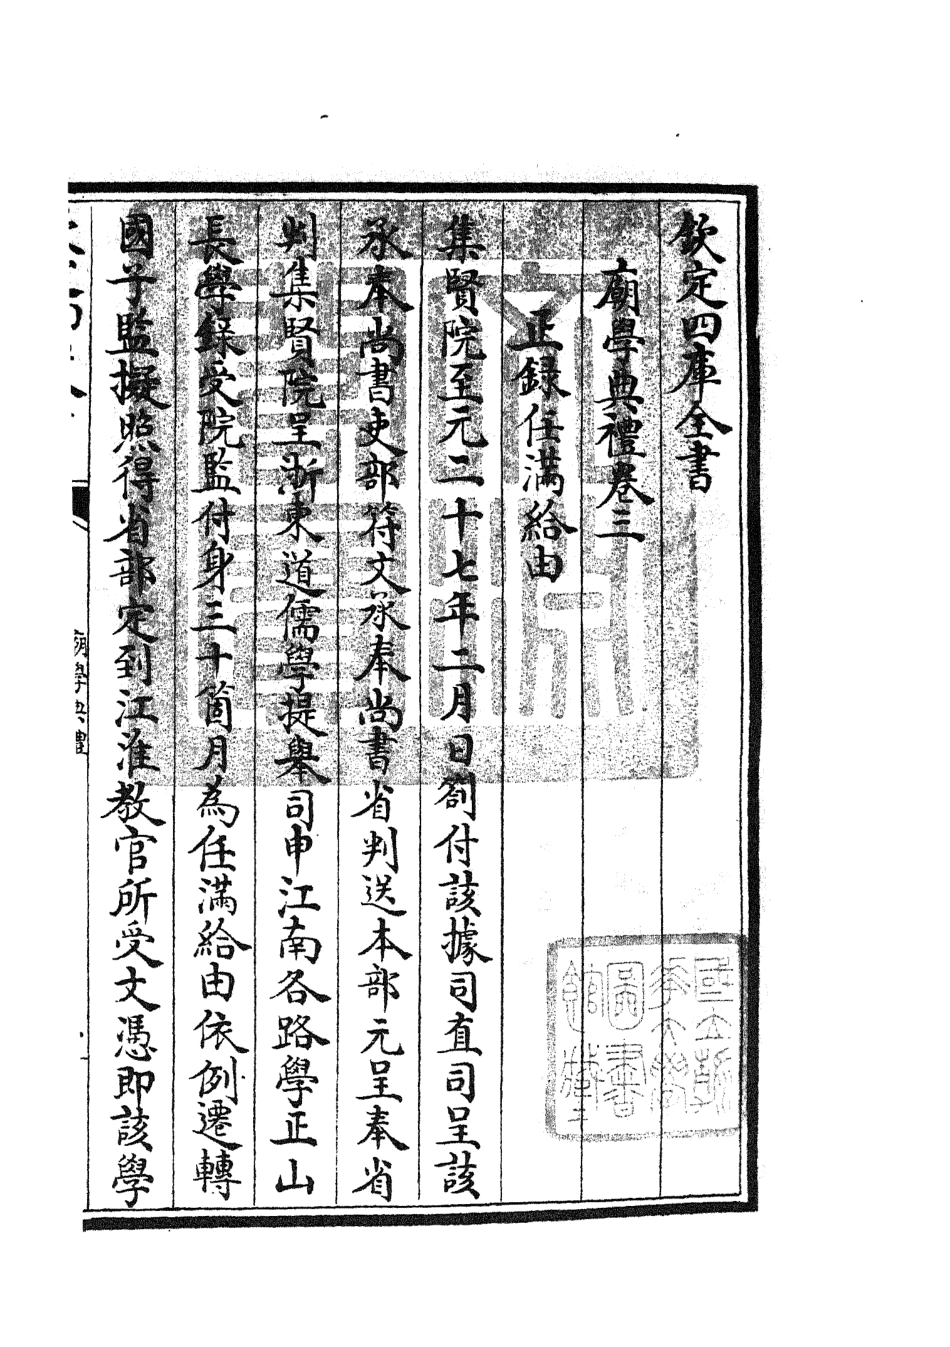 欽定四庫全書
廟學典禮卷三
正録任滿給由
集賢院至元二十七年二月日劄付該據司直司呈該
承奉尚書吏部符文承奉尚書省判送本部元呈奉省
判集賢院呈浙東道儒學提舉司申江南各路學正山
長學録受院監付身三十箇月為任滿給由依例遷轉
國子監擬照得省部定到江淮教官所受文憑即該學
廟學典禮